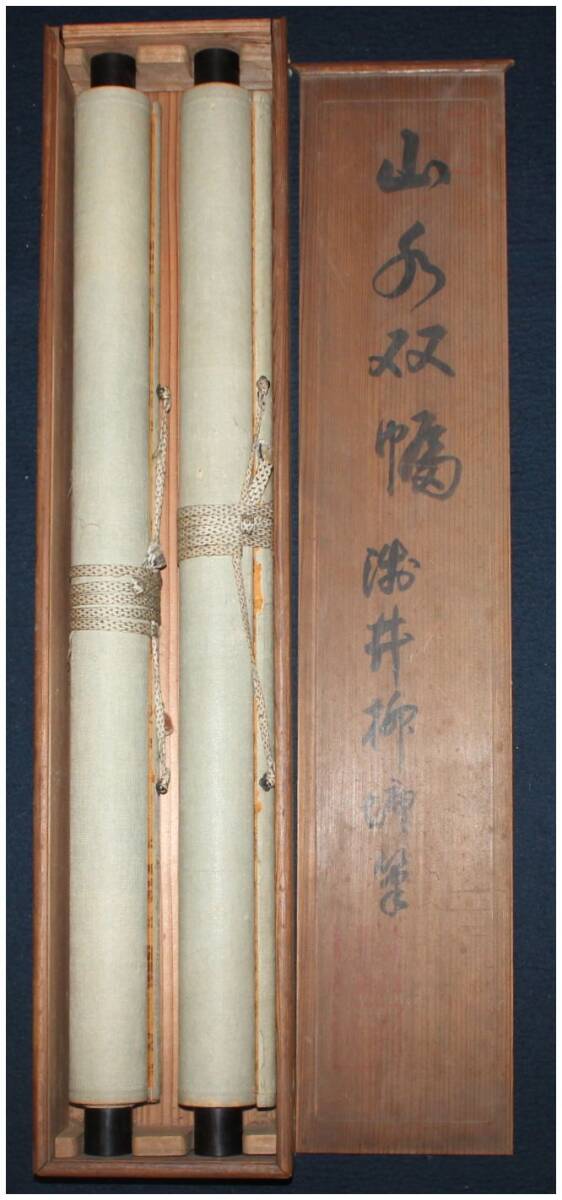 山水双幅
浅井柳塘筆